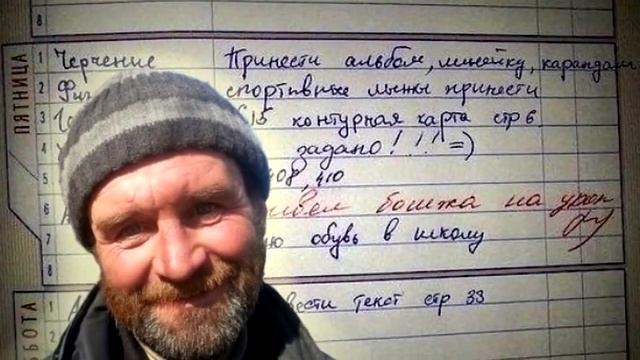 8
ПЯТНИЦА
1 Черчение Принести альбом, линейку, карандаш
2 Физ спортивные лыжи принести
3 15 контурная карта стр 6
4 задано!!! =)
5 408, 410
6 ивел бомжа на урок
7 ую обувь в школу
8
БОТА
1 вести текст стр 33